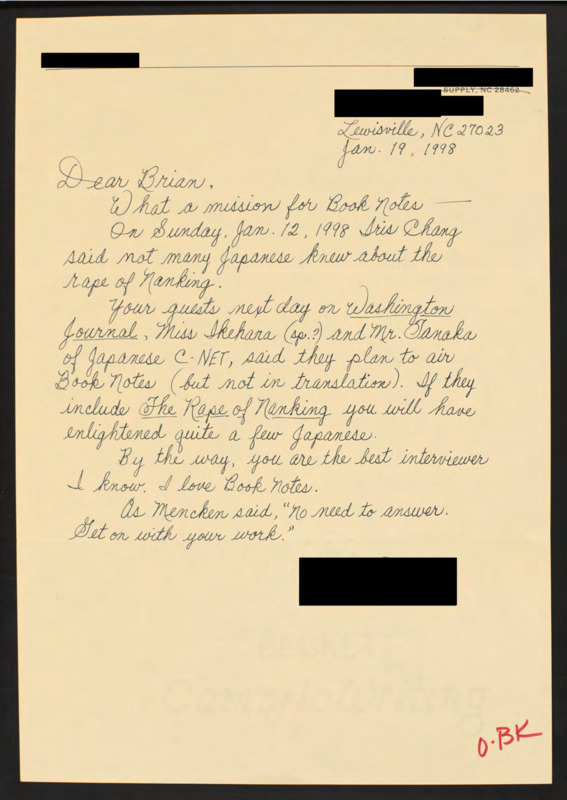 SUPPLY, NC 28462
Lewisville, NC 27023
Jan. 19, 1998
Dear Brian,
What a mission for Book Notes —
On Sunday, Jan. 12, 1998 Iris Chang
said not many Japanese knew about the
rape of Nanking.
Your guests next day on Washington
Journal, Miss Ikehara (sp.?) and Mr. Tanaka
of Japanese C-NET, said they plan to air
Book Notes (but not in translation). If they
include The Rape of Nanking you will have
enlightened quite a few Japanese.
By the way, you are the best interviewer
I know. I love Book Notes.
As Mencken said, "No need to answer.
Get on with your work."
O-BK